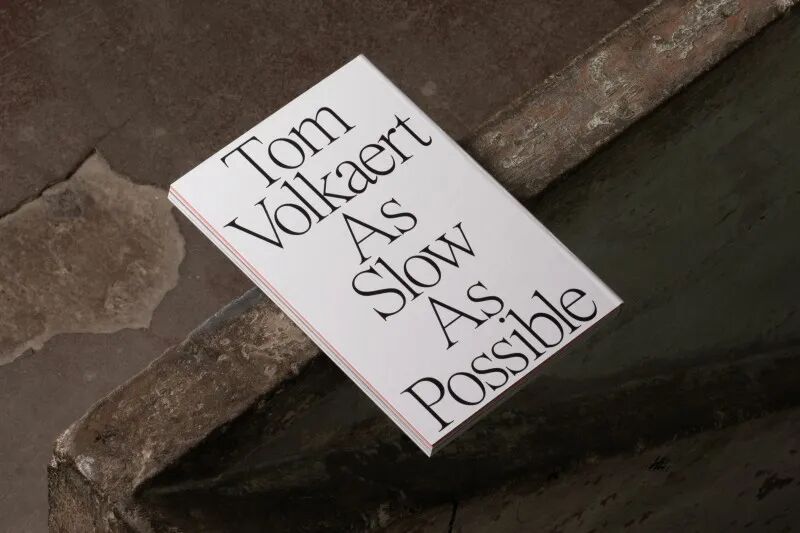 Tom
Volkaert
As
Slow
As
Possible